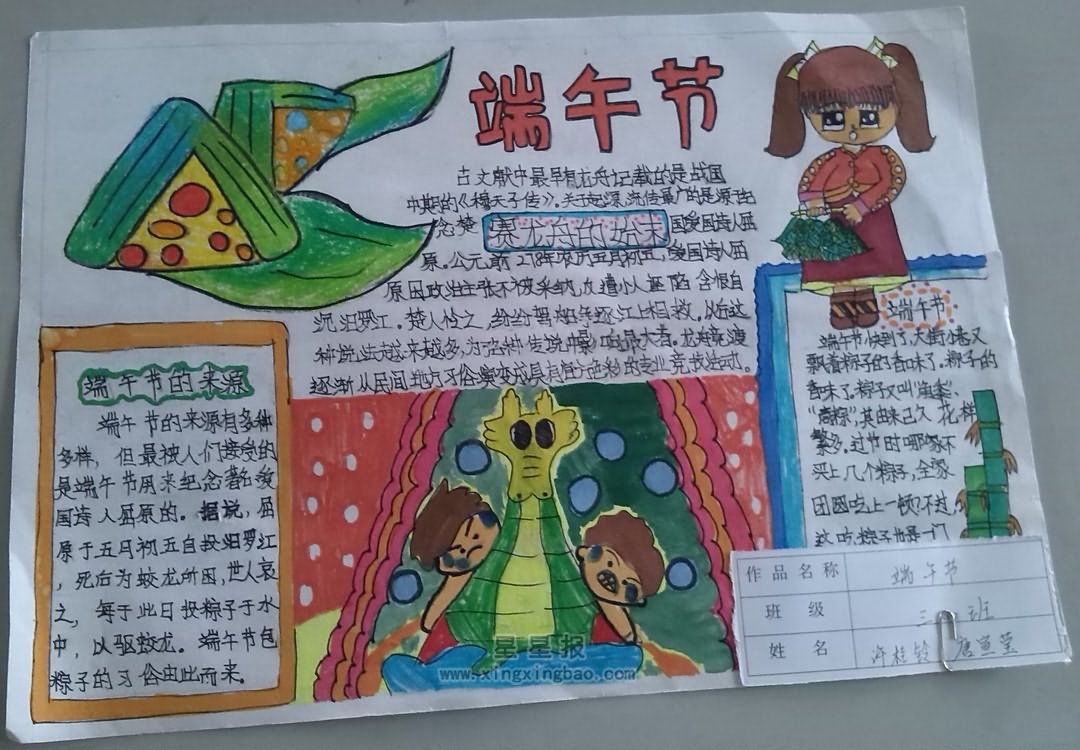 端午节
古文献中最早有龙舟记载的是战国
中期的《穆天子传》。关于起源,流传最广的是源于
念楚
国爱国诗人屈
赛龙舟的始末
原。公元前278年农历五月初五,爱国诗人屈
原因政治主张不被采纳,遭小人诬陷含恨自
沉汨罗江。楚人怜之,纷纷驾船至江上相救。从此这
种说法越来越多,为各种传说中影响最大者。龙舟竞渡
逐渐从民间地方习俗演变成具有色彩的专业竞技活动。
端午节的来源
端午节的来源有多种
多样,但最被人们接受的
是端午节用来纪念著名爱
国诗人屈原的。据说,屈
原于五月初五自投汨罗江
,死后为蛟龙所困,世人哀
之,每于此日投粽子于水
中,以驱蛟龙。端午节包
粽子的习俗由此而来。
端午节
端午节快到了,大街小巷又
飘着粽子的香味了。粽子的
香味了。粽子又叫
其由来已久花样
繁多。过节时哪家不
买上几个粽子,全家
团圆吃上一顿?不过,
这吃粽子也是一门
作品名称 端午节
班 级 三 班
姓 名 许桂铃 唐 莹
星星报
www.xingxingbao.com